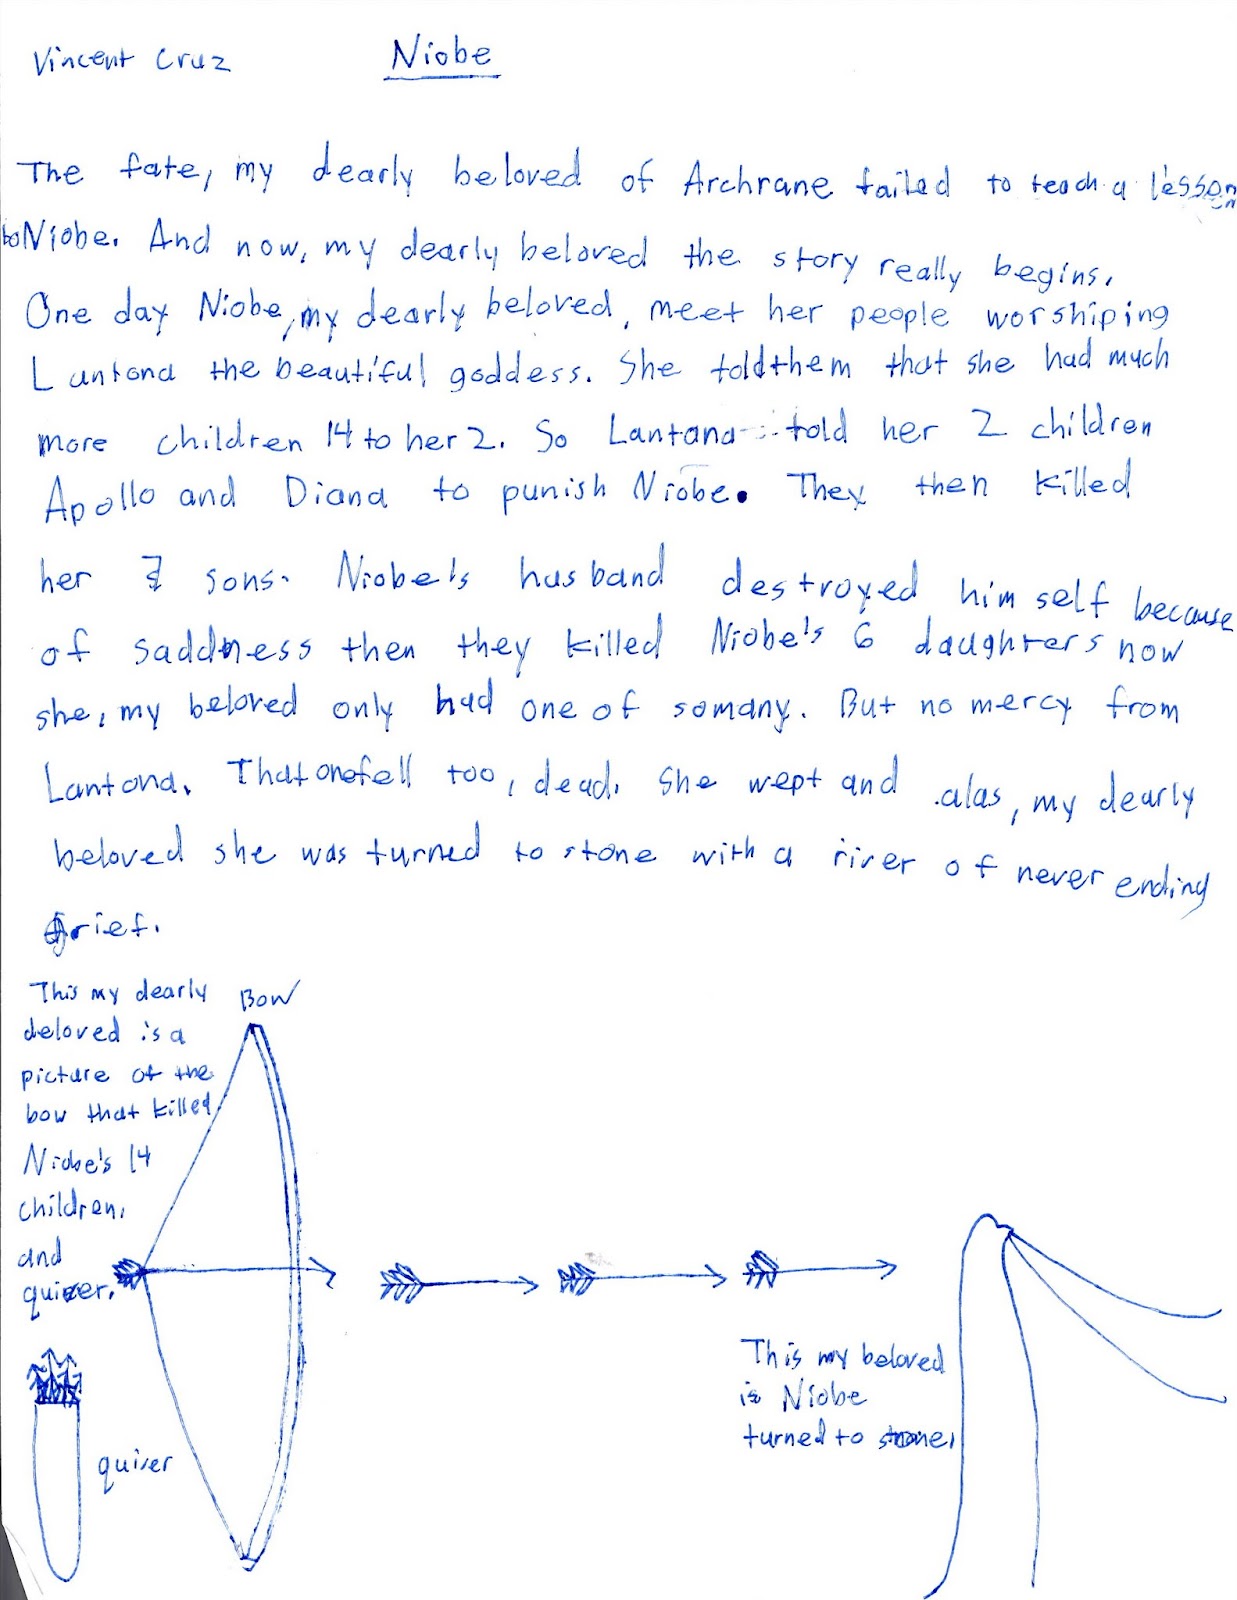 Vincent Cruz
Niobe
The fate, my dearly beloved of Archrane failed to teach a lesson
to Niobe. And now, my dearly beloved the story really begins.
One day Niobe, my dearly beloved, meet her people worshiping
Lantona the beautiful goddess. She told them that she had much
more children 14 to her 2. So Lantona told her 2 children
Apollo and Diana to punish Niobe. They then killed
her 7 sons. Niobe's husband destroyed him self because
of saddness then they killed Niobe's 6 daughters now
she, my beloved only had one of somany. But no mercy from
Lantona. That one fell too, dead. She wept and alas, my dearly
beloved she was turned to stone with a river of never ending
Grief.
This my dearly
deloved is a
picture of the
bow that killed
Niobe's 14
children.
and
quiver.
Bow
quiver
This my beloved
is Niobe
turned to stone.